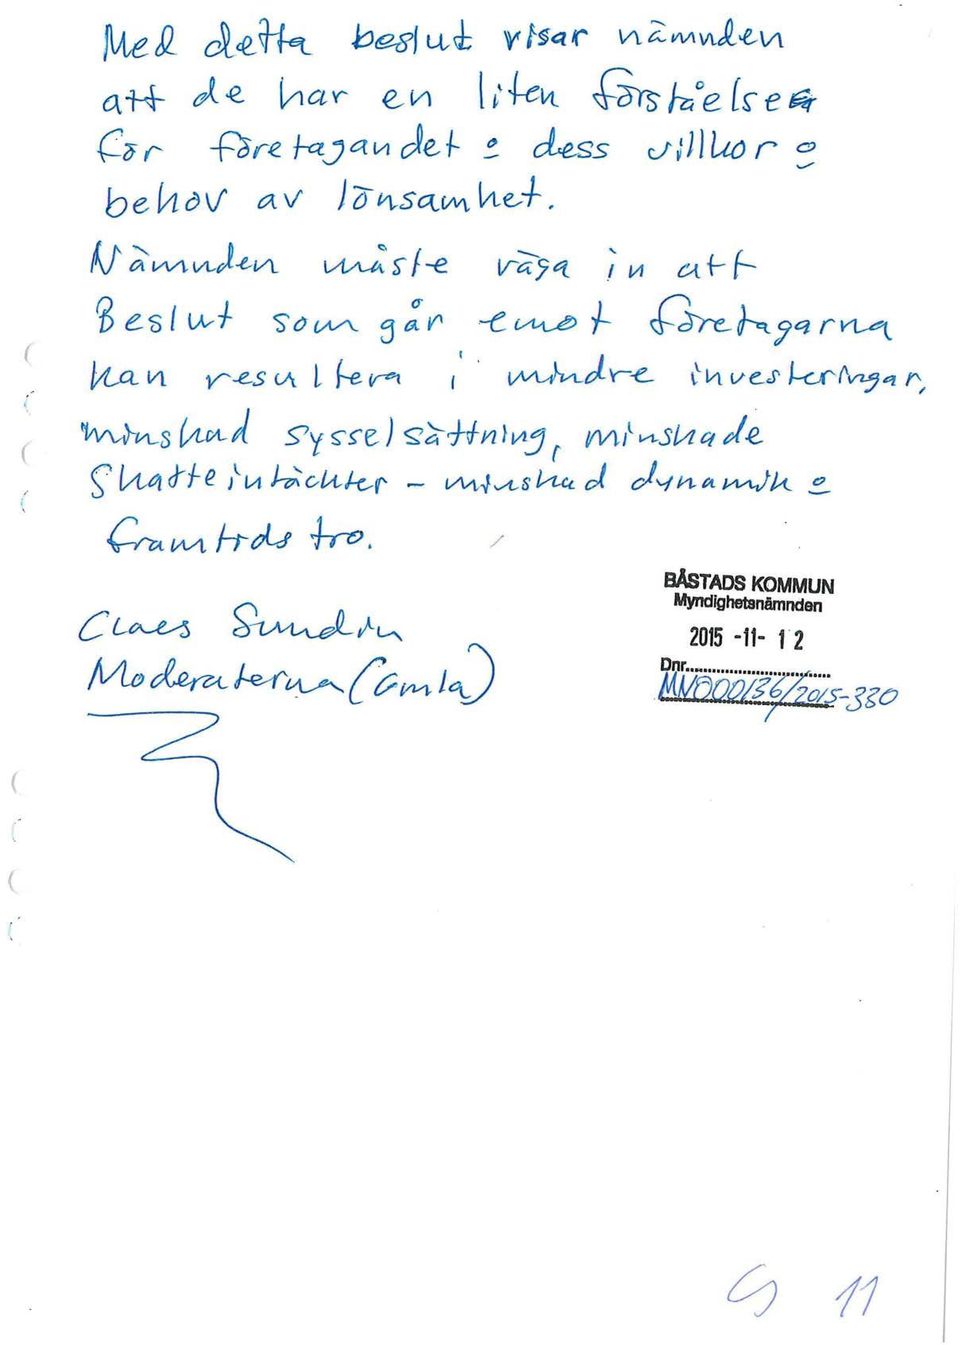 Med detta beslut visar nämnden
att de har en liten förståelse
för företagandet o dess villkor o
behov av lönsamhet.
Nämnden måste väga in att
Beslut som går emot företagarna
kan resultera i mindre investeringar,
minskad sysselsättning, minskade
Skatteintäckter – minskad dynamik o
framtids tro.
BÅSTADS KOMMUN
Myndighetsnämnden
2015 -11- 12
Dnr
MN000136/2015-330
Claes Sundin
Moderaterna (Gmla)
11